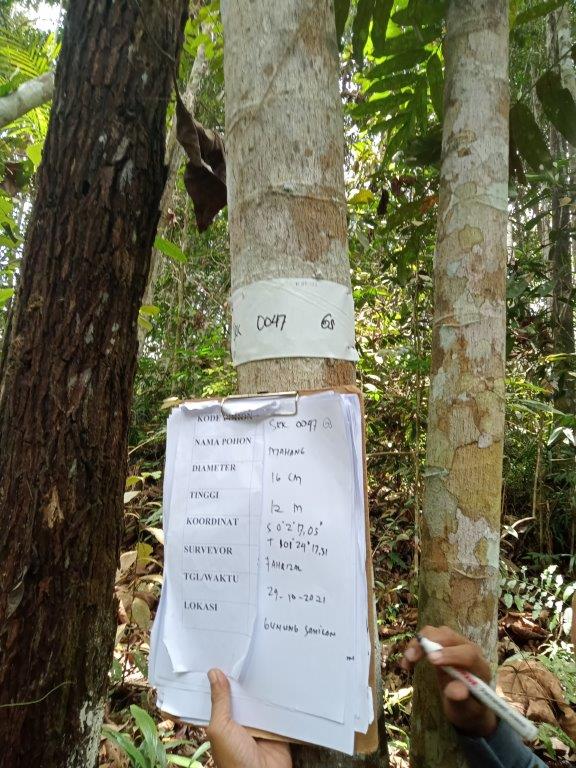 SKK 0047 GS
KODE POHON SKK 0047 GS
NAMA POHON MAHANG
DIAMETER 16 CM
TINGGI 12 M
KOORDINAT S 0°2'7,05"
T 101°24'17,51
SURVEYOR FAHRIZAL
TGL/WAKTU 29-10-2021
LOKASI GUNUNG SAHILAN